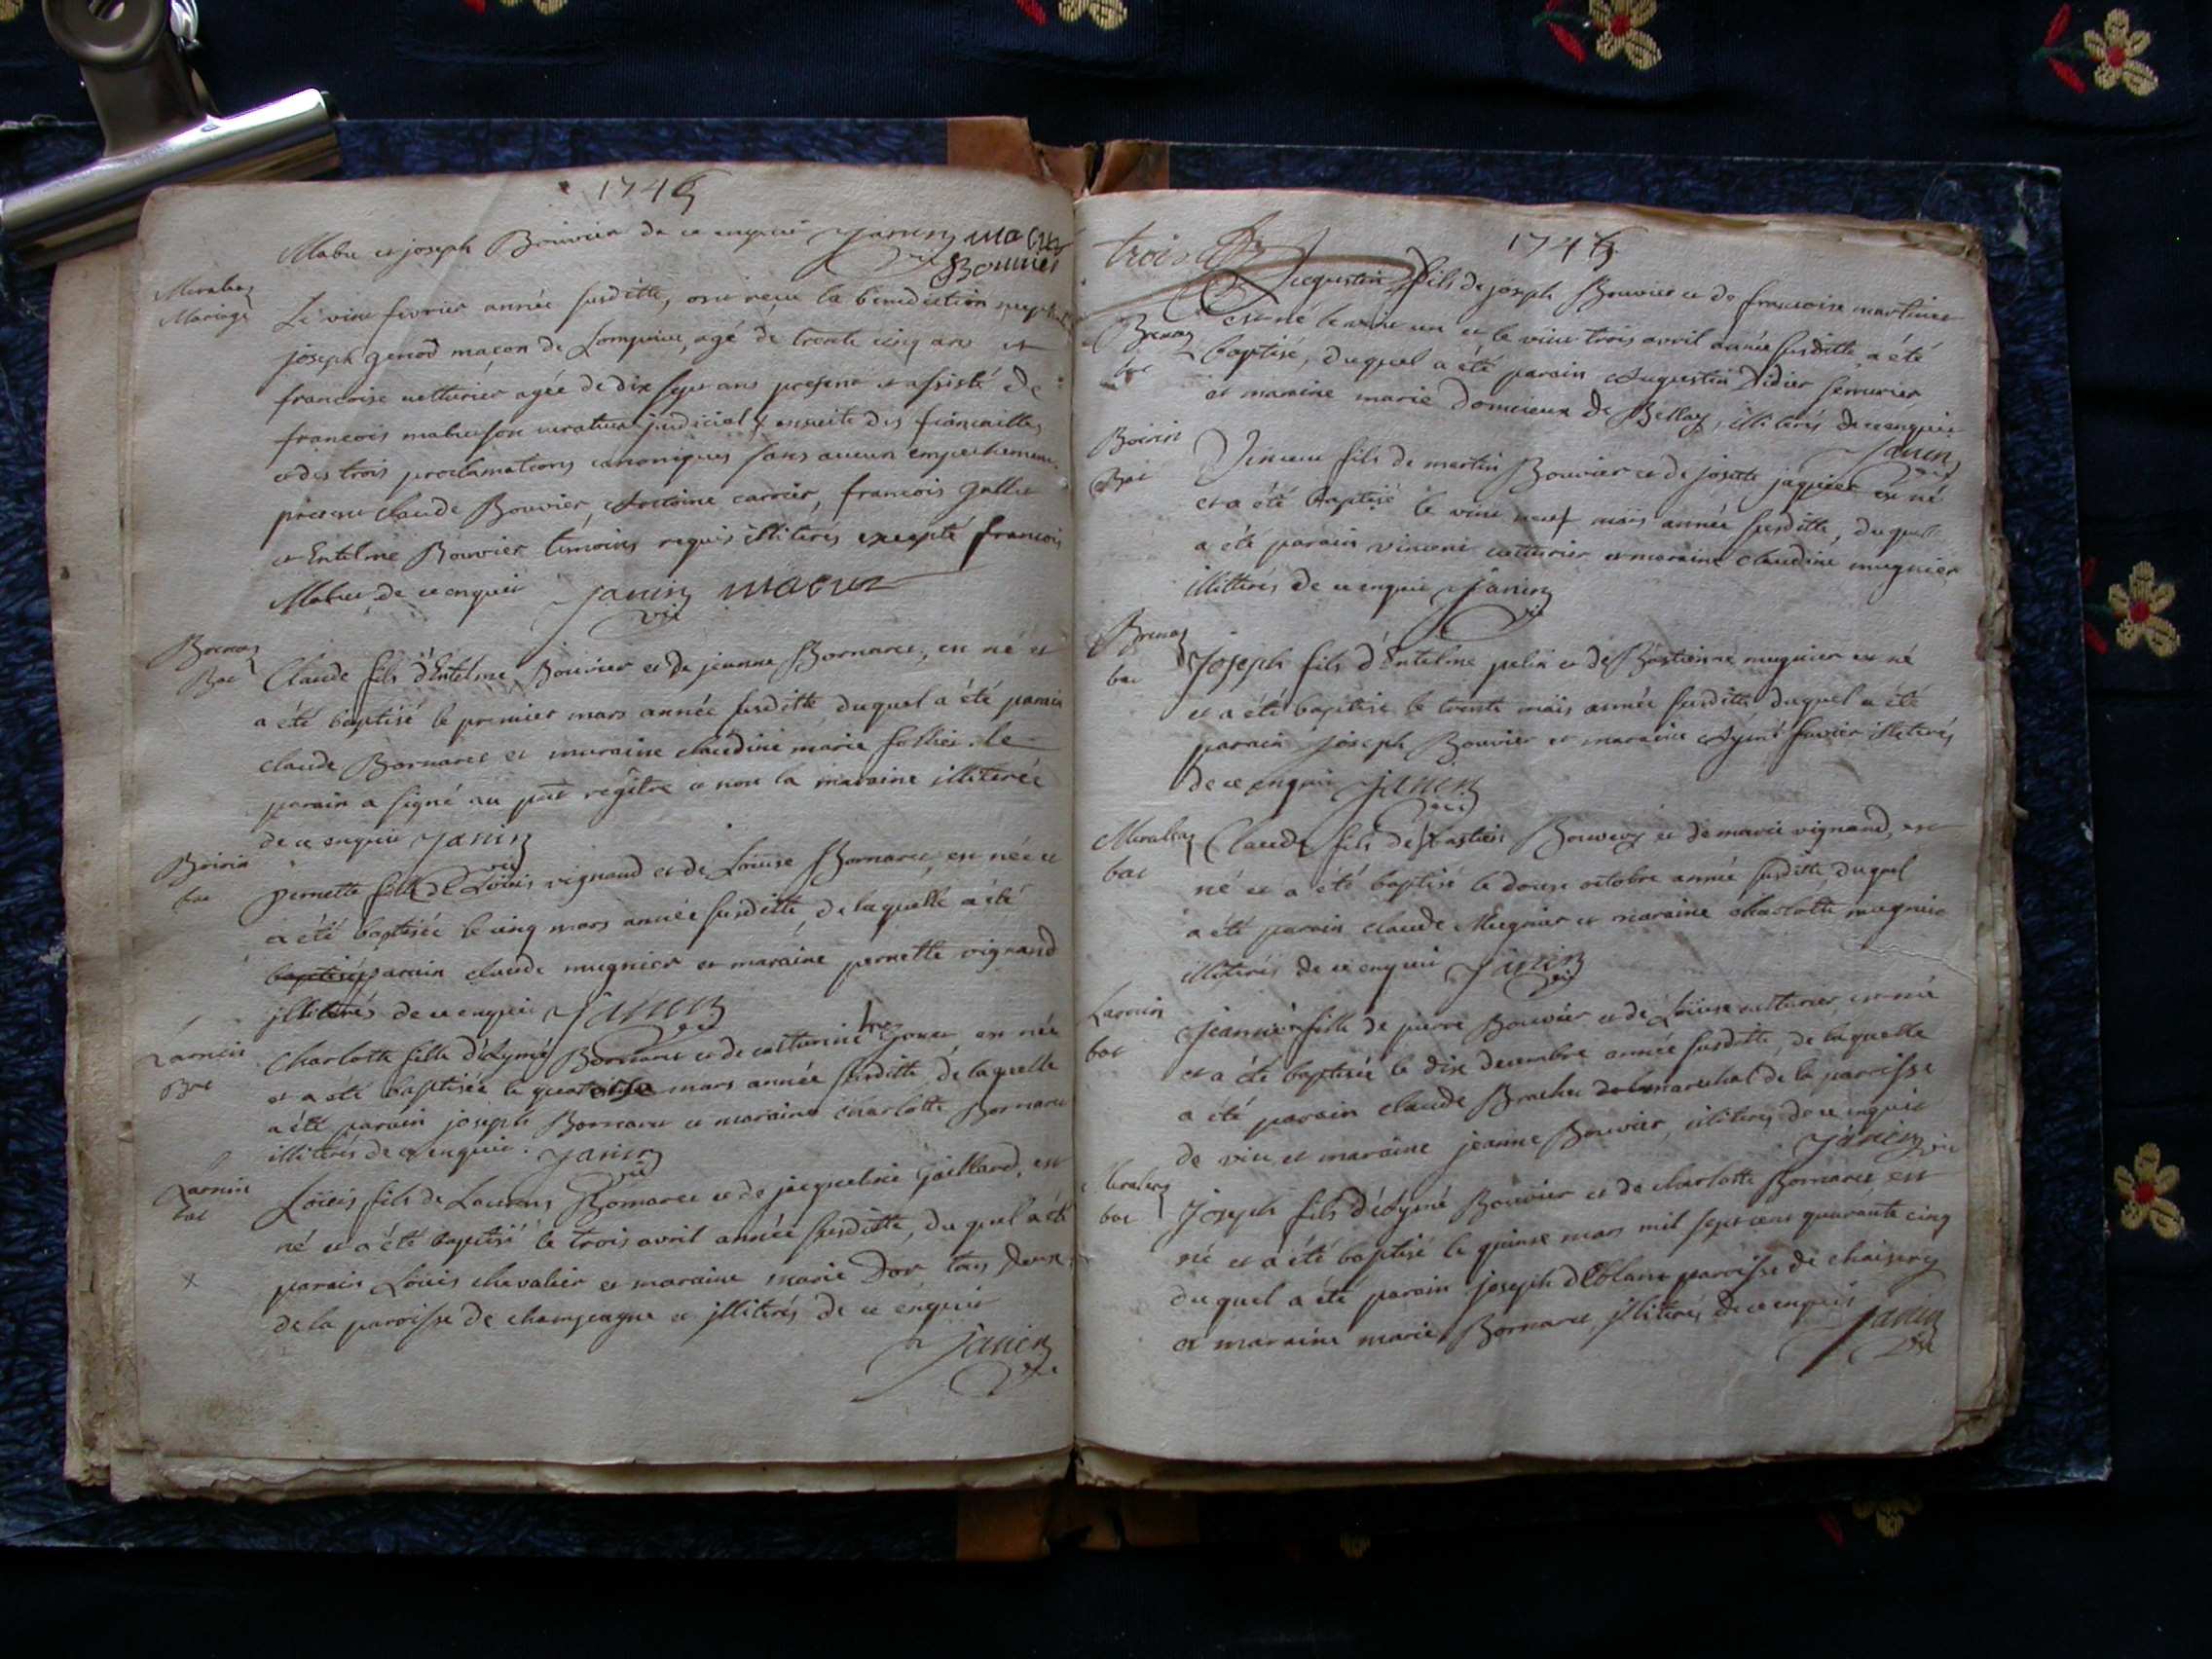 1745
Mabu et joseph Bouvier de ce enquis Janin vic Macu
Bouvier
Mirabaz
Mariage
Le vint fevrier année susditte, ont reçu la benediction nuptiale
joseph genod maçon de Lompnieu, agé de trente cinq ans et
francoise catturier agée de dix sept ans presente et assisté de
francois mabu son curateur judicial, ensuite des fiancailles
et des trois proclamations canoniques sans aucun empechement
presens claude Bouvier, Antoine carrier, francois gallu
et Entelme Bouvier temoins requis illiterés excepté francois
Mabu de ce enquis Janin vic macu
Brenaz
Bat
Claude fils d'Entelme Bouvier et de jeanne Bornarel, est né et
a été baptisé le premier mars année susditte duquel a été parain
claude Bornarel et maraine claudine marie follier. le
parain a signé au pnt régitre et non la maraine illiterée
de ce enquis Janin vic
Boirin
bat
Pernette fille de Loüis vignand et de Loüise Bornarel, est née et
a été baptisée le cinq mars année susditte, de laquelle a été
baptisée parain claude mugnier et maraine pernette vignand
illiterés de ce enquis Janin vic
Larnin
Bat
Charlotte fille d'Aymé Bornarel et de catturine, est née
et a été baptisée le quatorse mars année susditte, de laquelle
a été parain joseph Bornarel et maraine charlotte Bornarel
illiterés de ce enquis. Janin vic
Larnin
bat
Loüis fils de Laurens Bornarel et de jacqueline Gaillard, est
né et a été baptisé le trois avril année susditte, du quel a été
x
parain Loüis chevalier et maraine marie Dor tous deux
de la paroisse de champagne et illiterés de ce enquis
Janin vic
1745
trois
Augustin fils de joseph Bouvier et de francoise martinet
Brenaz
bat
est né le vint un et le vint trois avril année susditte a été
baptisé, duquel a été parain Augustin Didier serrurier
et maraine marie domcieux de Bellay, illiterés de ce enquis
Janin vic
Boirin
Bat
Vincent fils de martin Bouvier et de josette jaquier est né
et a été baptisé le vint neuf mais année susditte, duquel
a été parain vincent catturier et maraine claudine mugnier
illitterés de ce enquis Janin vic
Brenaz
bat
Joseph fils d'Entelme pelin et de Bastienne mugnier est né
et a été baptisé le trente mais année susditte duquel a été
parain joseph Bouvier et maraine Aymé illiterés
de ce enquis Janin vic
Mirabaz
bat
Claude fils de Bastien Bouvery et de marie vignand, est
né et a été baptisé le douse octobre année susditte, duquel
a été parain claude Mugnier et maraine charlotte mugnier
illiterés de ce enquis Janin vic
Larnin
bat
Jeanne fille de pierre Bouvier et de Loüise catturier, est née
et a été baptisée le dix decembre année susditte, de laquelle
a été parain claude Brachet marechal de la paroisse
de vieu, et maraine jeanne Bouvier, illiteres de ce enquis
Janin vic
Mirabaz
bat
Joseph fils d'Aymé Bouvier et de charlotte Bornarel est
né et a été baptisé le quinse mars mil sept cens quarante cinq
duquel a été parain joseph paroisse de chaisery
et maraine marie Bornarel, illiterés de ce enquis
Janin vic